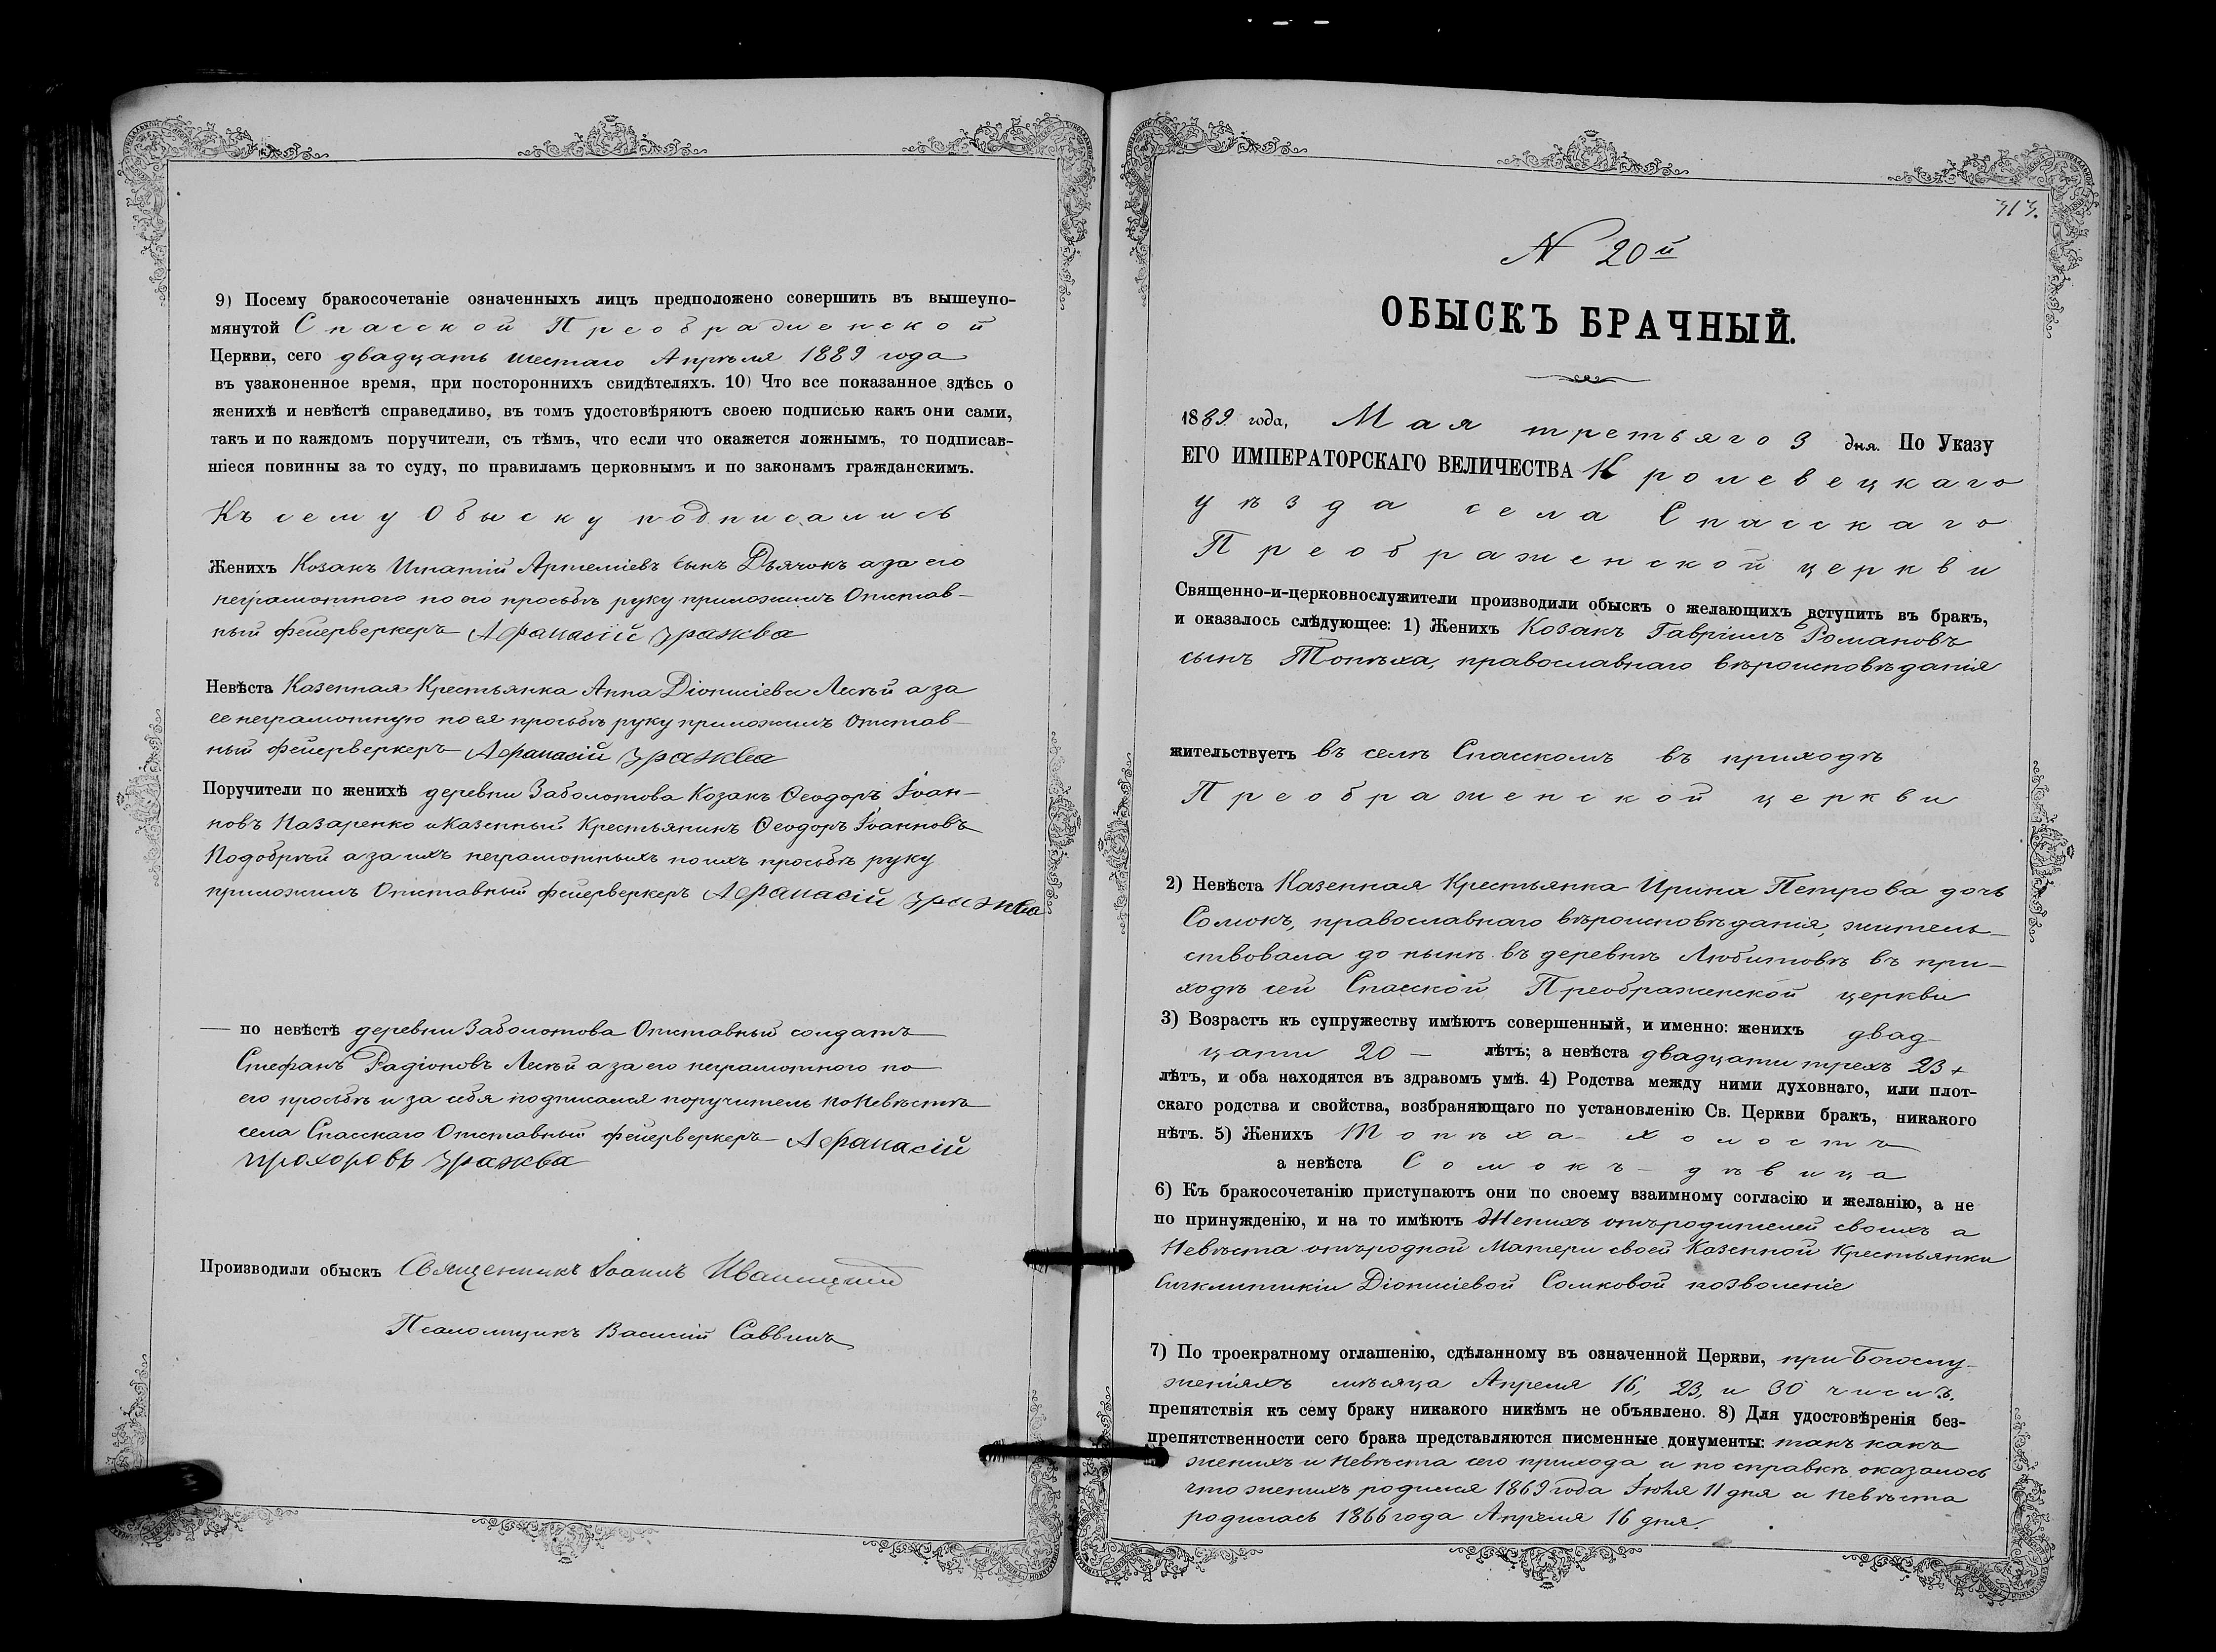 9) Посему бракосочетаніе означенныхъ лицъ предположено совершить въ вышеупо-
мянутой Спасской Преображенской
Церкви, сего двадцать шестаго Апрѣля 1889 года
въ узаконенное время, при постороннихъ свидѣтеляхъ. 10) Что все показанное здѣсь о
женихѣ и невѣстѣ справедливо, въ томъ удостовѣряютъ своею подписью какъ они сами,
такъ и по каждомъ поручители, съ тѣмъ, что если что окажется ложнымъ, то подписав-
шіеся повинны за то суду, по правиламъ церковнымъ и по законамъ гражданскимъ.
Къ сему Обыску подписались
Женихъ Козакъ Игнатій Артеміевъ сынъ Дьячокъ а за его
неграмотного по его просьбѣ руку приложилъ Отстав-
ный фейерверкеръ Афанасій Зражва
Невѣста Казенная Крестьянка Анна Діонисіева Лесъй а за
ее неграмотную по ея просьбѣ руку приложилъ Отстав-
ный фейерверкеръ Афанасій Зражва
Поручители по женихѣ деревни Заболотова Козакъ Ѳеодоръ Іоан-
новъ Назаренко и Казенный Крестьянинъ Ѳеодоръ Іоанновъ
Подобрѣй а за ихъ неграмотныхъ по ихъ просьбѣ руку
приложилъ Отставный фейерверкеръ Афанасій Зражва
— по невѣстѣ деревни Заболотова Отставный солдатъ
Стефанъ Радіоновъ Лесъй а за его неграмотного по
его просьбѣ и за себя подписался поручитель по Невѣстѣ
села Спасскаго Отставный фейерверкеръ Афанасій
Прохоровъ Зражва
Производили обыскъ Священникъ Іоаннъ
Псаломщикъ Василій Саввичъ
313.
N 20й
ОБЫСКЪ БРАЧНЫЙ.
1889 года, Мая третьяго 3 дня. По Указу
ЕГО ИМПЕРАТОРСКАГО ВЕЛИЧЕСТВА Кролевецкаго
уѣзда села Спасскаго
Преображенской церкви
Священно-и-церковнослужители производили обыскъ о желающихъ вступить въ бракъ,
и оказалось слѣдующее: 1) Женихъ Козакъ Гавріилъ Романовъ
сынъ Топѣха, православнаго вѣроисповѣданія
жительствуетъ въ селѣ Спасскомъ въ приходѣ
Преображенской церкви
2) Невѣста Казенная Крестьянка Ирина Петрова дочь
Сомокъ, православнаго вѣроисповѣданія, житель-
ствовала до нынѣ въ деревнѣ Любитовѣ въ при-
ходѣ сей Спасской Преображенской церкви
3) Возрастъ къ супружеству имѣютъ совершенный, и именно: женихъ двад-
цати 20 — лѣтъ; а невѣста двадцати трехъ 23 +
лѣтъ, и оба находятся въ здравомъ умѣ. 4) Родства между ними духовнаго, или плот-
скаго родства и свойства, возбраняющаго по установленію Св. Церкви бракъ, никакого
нѣтъ. 5) Женихъ Топѣха - холостъ
а невѣста Сомокъ - дѣвица
6) Къ бракосочетанію приступаютъ они по своему взаимному согласію и желанію, а не
по принужденію, и на то имѣютъ Женихъ отъ родителей своихъ а
Невѣста отъ родной Матери своей Казенной Крестьянки
Сигклитикіи Діонисіевой Сомковой позволеніе
7) По троекратному оглашенію, сдѣланному въ означенной Церкви, при Богослу-
женіяхъ мѣсяца Апреля 16, 23, и 30 числъ,
препятствія къ сему браку никакого никѣмъ не объявлено. 8) Для удостовѣренія без-
препятственности сего брака представляются писменные документы: такъ какъ
женихъ и Невѣста сего прихода и по справкѣ оказалось
что женихъ родился 1869 года Іюля 11 дня а невѣста
родилась 1866 года Апреля 16 дня.